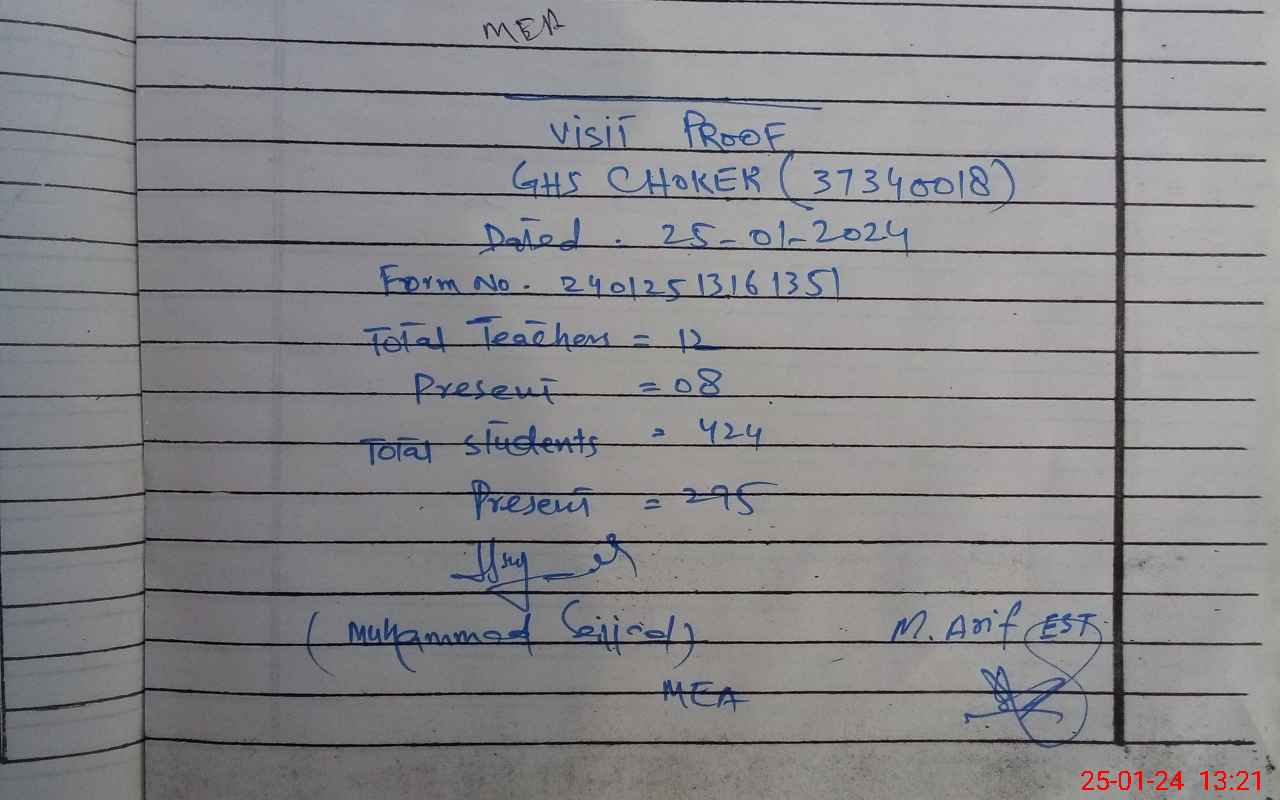 MEA
VISIT PROOF
GHS CHOKER (37340018)
Dated . 25-01-2024
Form No. 24012513161351
Total Teachers = 12
Present = 08
Total students = 424
Present = 295
(Muhammad Sajjad)
M. Arif EST
MEA
25-01-24 13:21